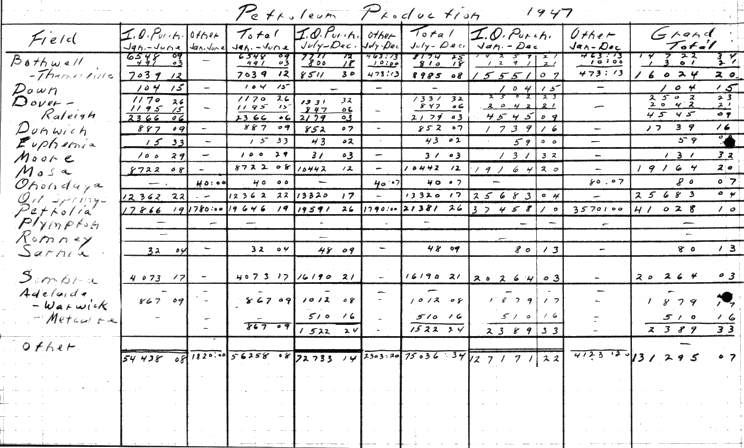 Petroleum Production 1947
Field I.O. Purch. Jan.-June Other Jan. June Total Jan.-June I.O. Purch. July-Dec. Other July-Dec Total July-Dec. I.O. Purch. Jan.-Dec. Other Jan-Dec Grand Total
Bothwell 6548 09 - 6548 09
491 03 491 03 800 18 10:00 810 18 1291 21 10:00 1301 21
-Thamesville 7039 12 - 7039 12 8511 30 473:13 8985 08 15551 07 473:13 16024 20
Dawn 104 15 - 104 15 - - - 104 15 - 104 15
Dover- 1170 26 - 1170 26 1331 32 1331 32 2502 23 2502 03
Raleigh 1195 15 1195 15 847 06 847 06 2042 21 2042 21
2366 06 2366 06 2179 03 - 2179 03 4545 09 - 4545 09
Dunwich 887 09 - 887 09 852 07 - 852 07 1739 16 - 1739 16
Euphemia 15 33 - 15 33 43 02 - 43 02 59 00 - 59
Moore 100 29 - 100 29 31 03 - 31 03 131 32 - 131 32
Mosa 8722 08 - 8722 08 10442 12 - 10442 12 19164 20 - 19164 20
Onondaga - 40:00 40 00 - 40:07 40 07 - 80:07 80 07
Oil Springs 12362 22 - 12362 22 13320 17 - 13320 17 25683 04 - 25683 04
Petrolia 17866 19 1780:00 19646 19 19591 26 1790:00 21381 26 37458 10 3570:00 41028 10
Plympton - - - - - - - - -
Romney - - - - - - - - -
Sarnia 32 04 - 32 04 48 09 - 48 09 80 13 - 80 13
Sombra 4073 17 - 4073 17 16190 21 - 16190 21 20264 03 - 20264 03
Adelaide - - - - - - - -
-Warwick 867 09 - 867 09 1012 08 - 1012 08 1879 17 - 1879
-Metcalfe - - 510 16 - 510 16 510 16 - 510 16
867 09 1522 24 1522 24 2389 33 2389 33
Other
54438 08 1820:00 56258 08 72733 14 2303:20 75036:34 127171 22 4123 20 131295 07